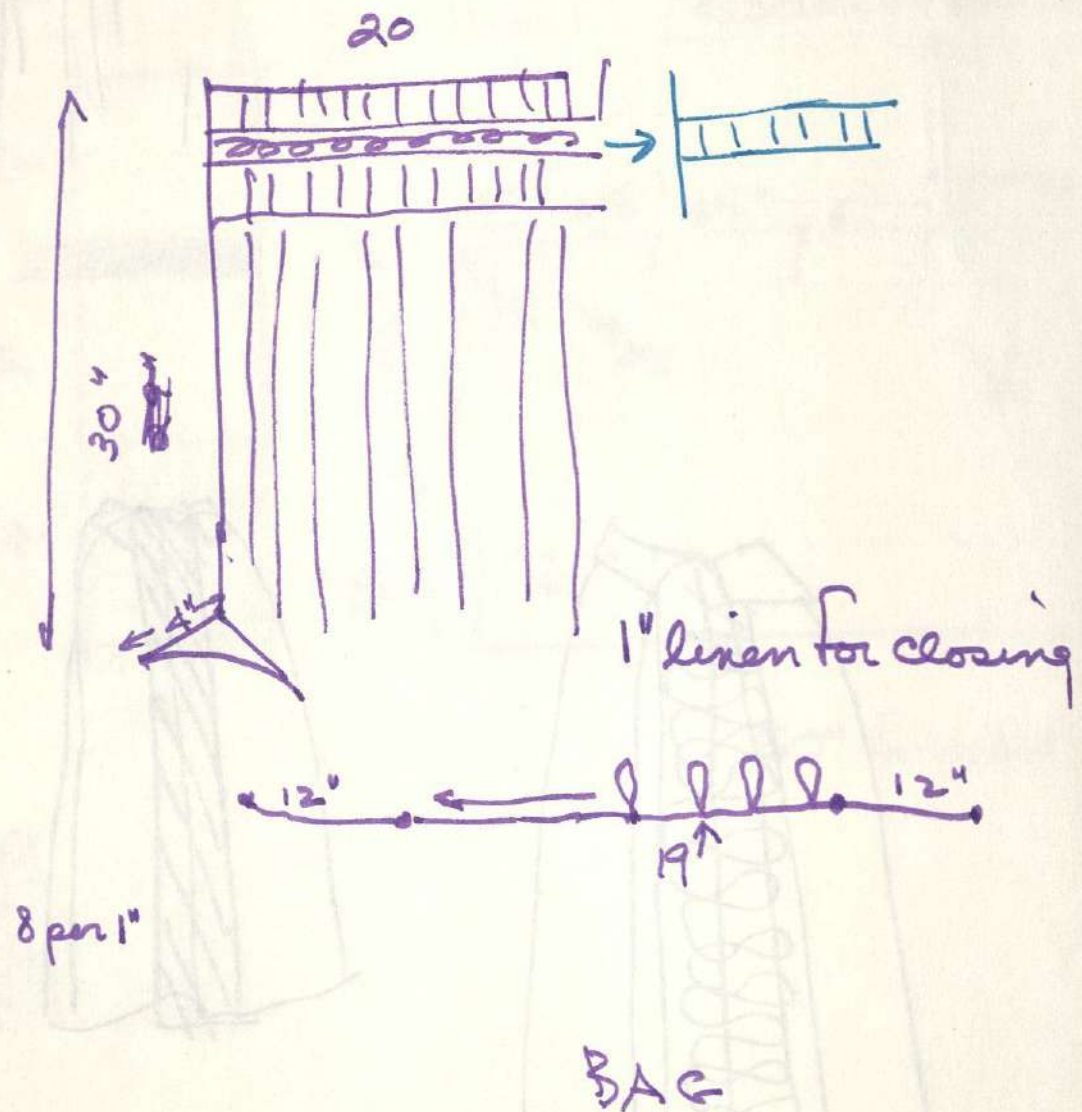 20
30"
4"
1" linen for closing
12"
12"
19
8 per 1"
BAG